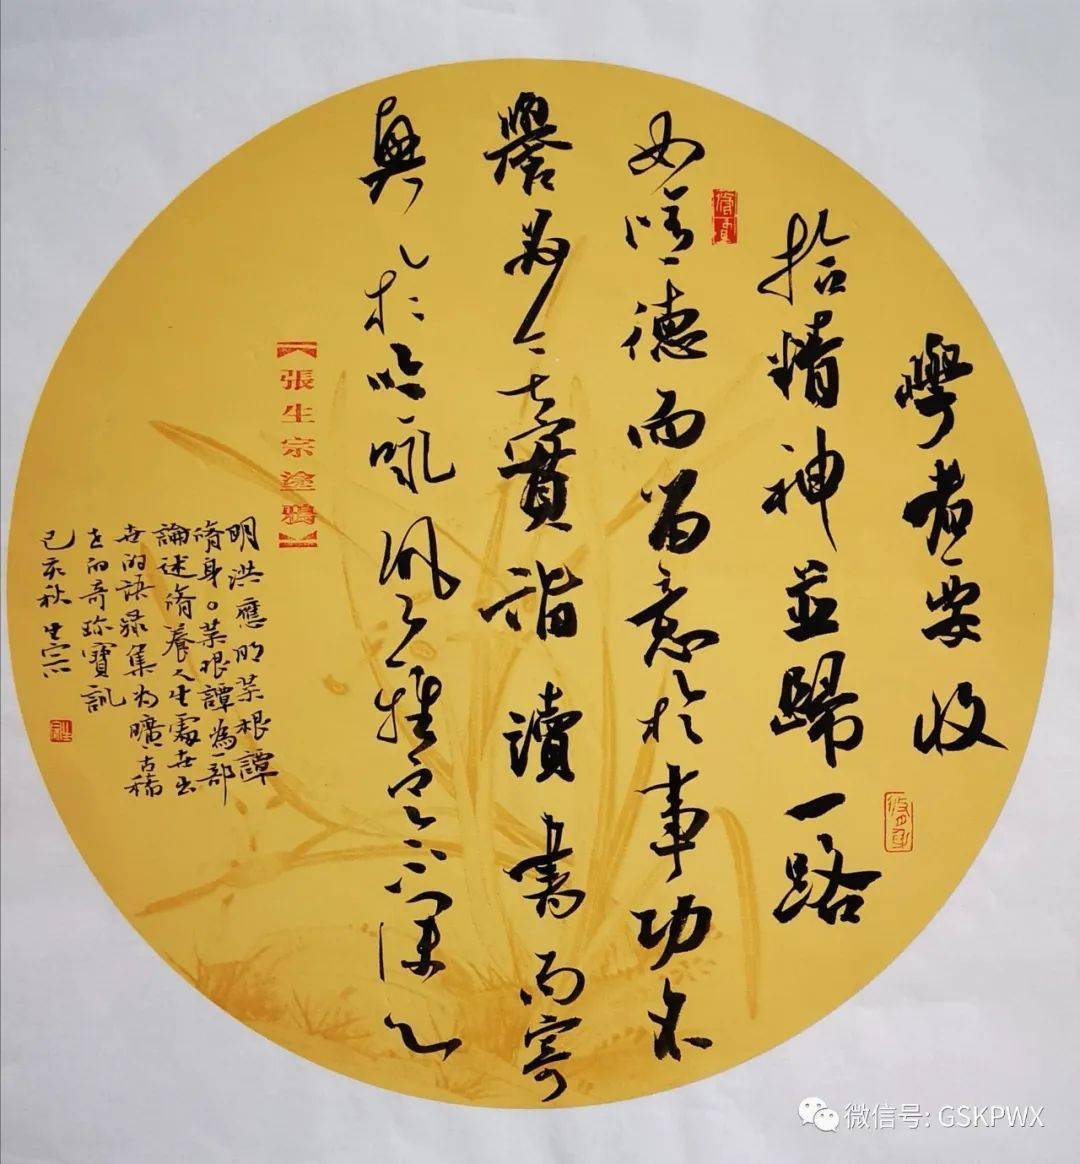 學者要收
拾精神並歸一路
如脩德而留意於事功名
譽實詣讀書而寄
興於吟咏風雅定不深心
【張生宗塗鴉】
明洪應明菜根譚
脩身。菜根譚為一部
論述脩養人生處世出
世的語录集为曠古稀
世的奇珍寶訓
己亥秋生宗
微信号: GSKPWX